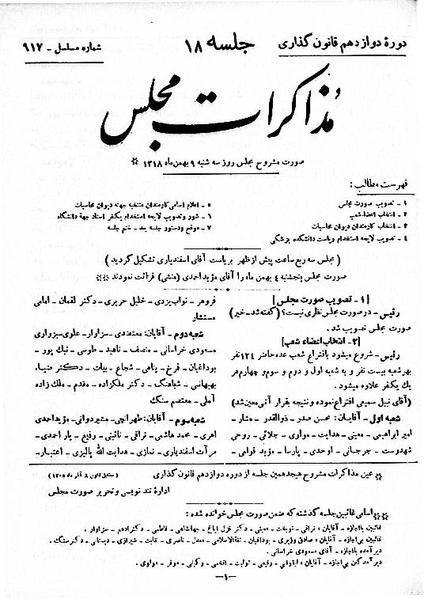 دورهٔ دوازدهم قانون گذاری
جلسه ۱۸
شماره مسلسل - ۹۱۷
مذاکرات مجلس
صورت مشروح مجلس روز سه شنبه ۹ بهمن ماه ۱۳۱۸ *
فهرست مطالب:
۱ - تصویب صورت مجلس
۲ - انتخاب اعضاء شعب
۳ - انتخاب کارمندان دیوان محاسبات
۴ - تصویب لایحه استخدام ریاست دانشکده پزشکی
۵ - اعلام اسامی کارمندان منتخبه جهة دیوان محاسبات
۶ - شور و تصویب لایحه استخدام یکنفر استاد جهة دانشگاه
۷ - موقع و دستور جلسه بعد - ختم جلسه
(مجلس سه ربع ساعت پیش از ظهر بریاست آقای اسفندیاری تشکیل گردید)
صورت مجلس پنجشنبه ۴ بهمن ماه را آقای مؤید احمدی (منشی) قرائت نمودند **
[۱ - تصویب صورت مجلس]
رئیس - در صورت مجلس نظری نیست؟ (گفته شد - خیر)
صورت مجلس تصویب شد.
[۲ - انتخاب اعضاء شعب]
رئیس - شروع میشود باقتراع شعب عده حاضر ۱۲۴ نفر
بهر شعبه بیست نفر و به شعبه اول و دوم و سوم و چهارم هر
یک یکنفر علاوه میشود.
(آقای نبیل سمیعی اقتراع نموده و نتیجه بقرار آتی معین شد)
شعبه اول - آقایان: محسن صدر - ذوالقدر -
امیر ابراهیمی - معینی - هدایت - مولوی - جلائی - روحی
شهدوست - جرجانی - اوحدی - پارسا - مؤید قوامی -
فروهر - نواب یزدی - خلیل حریری - دکتر لقمان - امامی
مستشار
شعبه دوم - آقایان: معتضدی - سزاوار - علوی سبزواری
مسعودی خراسانی - منصف - ناهید - طوسی - نیک پور -
بوداغیان - فرخ - پناهی - شجاع - بیات - دکتر ضیاء
بهبهانی - شباهنگ - دکتر ملک زاده - مقدم - ملک زاده
آملی - معتصم سنگ
شعبه سوم - آقایان: طهرانچی - مشیر دوانی - مؤید احمدی
اهری - محمد هاشمی - نراقی - نائینی - رفیع - یار احمدی -
مرآت اسفندیاری - نمازی - هدایت الله پالیزی - اعتبار -
* عین مذاکرات مشروح هیجدهمین جلسه از دوره دوازدهم قانون گذاری
اداره تند نویسی و تحریر صورت مجلس
** اسامی غائبین جلسه گذشته که ضمن صورت مجلس خوانده شده:
دیر آمده بااجازه - آقای مسعودی خراسانی.
- ۱ -